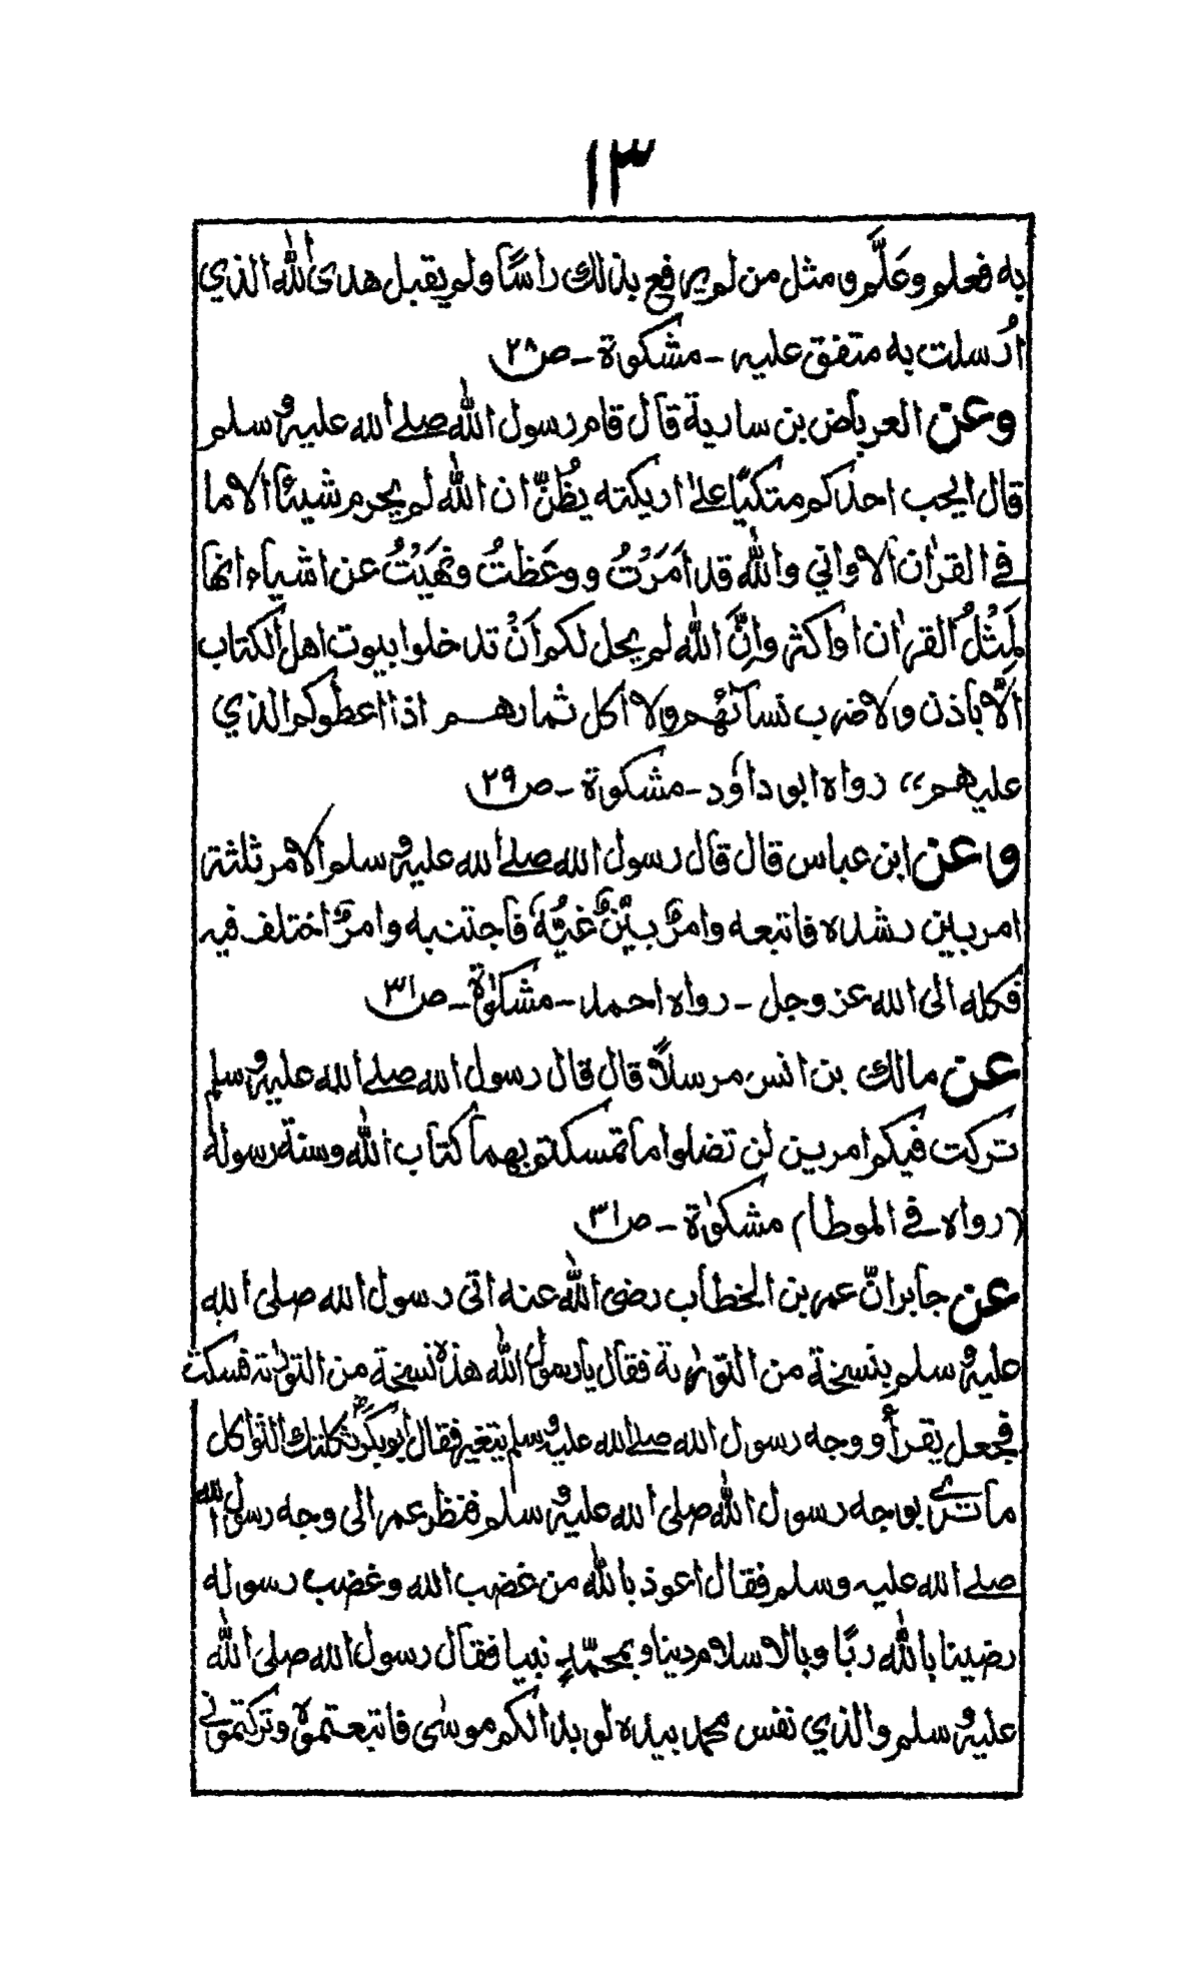 ١٣
به فعلم وعَلَّم ومثل من لم يرفع بذالك راسًا ولم يقبل هدى الله الذي
ارُسلت به متفق عليه ـ مشكوة ـ ص٢٨
وعن العرباض بن سارية قال قام رسول الله صلے الله عليه وسلم
قال ايحب احدكم متكيًا علےٰ اريكته يظُنّ ان الله لم يحرم شيئا الا ما
فے القراٰن الا واني والله قد امَرَتُ ووعَظتُ ونهَيَتُ عن اشياء انها
لَمِثلُ القراٰن او اكثر وانَّ الله لم يحل لكم اَنْ تدخلوا بيوت اهل الكتاب
الّا باذن ولا ضرب نسائهم ولا اكل ثمارهم اذا اعطوكم الذي
عليهم،، رواه ابو داؤد ـ مشكوة ـ ص٢٩
وعن ابن عباس قال قال رسول الله صلے الله عليه وسلم الامر ثلثة
امر بين رشده فاتبعه وامرٌ بيّنٌ غيُّهٗ فاجتنبه وامرٌ اختلف فيه
فكله الى الله عز وجل ـ رواه احمد ـ مشكوٰة ـ ص٣١
عن مالك بن انس مرسلاً قال قال رسول الله صلے الله عليه وسلم
تركت فيكم امرين لن تضلوا ما تمسكتم بهما كتاب الله وسنة رسوله
(رواه فے الموطا) مشكوٰة ـ ص٣١
عن جابر انّ عمر بن الخطاب رضى الله عنه اتى رسول الله صلى الله
عليه وسلم بنسخة من التورٰىة فقال يا رسول الله هذه نسخة من التورٰىة فسكت
فجعل يقرأ ووجه رسول الله صلے الله عليه وسلم يتغير فقال ابوبكرؓ ثكلتك الثواكل
ما ترےٰ بوجه رسول الله صلى الله عليه وسلم فنظر عمر الى وجه رسول الله
صلے الله عليه وسلم فقال اعوذ بالله من غضب الله وغضب رسوله
رضينا بالله ربًا وبالاسلام دينا وبمحمّدٍ نبيا فقال رسول الله صلى الله
عليه وسلم والذي نفس محمد بيده لو بدا لكم موسٰى فاتبعتموه وتركتموني